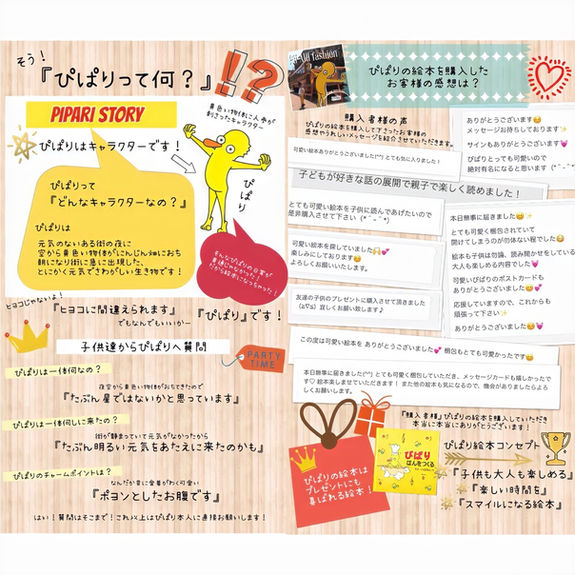 そう!
『ぴぱりって何?』!?
PIPARI STORY
ぴぱりはキャラクターです!
黄色い物体に人参が
刺さったキャラクター
ぴぱり
ぴぱりって
『どんなキャラクターなの?』
ぴぱりは
元気のないある街の夜に
空から黄色い物体がにんじん畑におち
朝になり街に急に出現した、
とにかく元気でさわがしい生き物です!
そんなぴぱりの日常が
普通じゃなかった!
だから絵本になっちゃった!
ヒヨコじゃないよ!
『ヒヨコに間違えられます』
でもなんでもいいかー
『ぴぱり』です!
子供達からぴぱりへ質問
PARTY
TIME
ぴぱりは一体何なの?
夜空から黄色い物体がおちてきたので
『たぶん星ではないかと思っています』
ぴぱりは一体何しに来たの?
街が静まっていて元気がなかったから
『たぶん明るい元気をあたえに来たのかも』
ぴぱりのチャームポイントは?
なんだか妙に愛着がわく可愛い
『ポヨンとしたお腹です』
はい!質問はそこまで!これ以上はぴぱり本人に直接お願いします!
fashion
ぴぱりの絵本を購入した
お客様の感想は?
購入者様の声
ぴぱりの絵本を購入して下さったお客様の
感想やうれしいメッセージを紹介させていただきます。
ありがとうございます😊
メッセージお待ちしております✨
サインもありがとうございます💓
ぴぱりとっても可愛いので
絶対有名になると思います(*^^*)
可愛い絵本ありがとうございました(^^) とても気に入りました!
子どもが好きな話の展開で親子で楽しく読めました!
とても可愛い絵本を子供に読んであげたいので
是非購入させて下さい(*^-^*)
可愛い絵本を探していました🙌💕
楽しみにしております😊
よろしくお願いいたします。
友達の子供のプレゼントに購入させて頂きました
(≧∇≦) 宜しくお願い致します♪
本日無事に届きました😊✨
とても可愛く梱包されていて
開けてしまうのが勿体ない程でした😆
絵本も子供は勿論、読み聞かせをしている
大人も楽しめる内容でした💓
可愛いぴぱりのポストカードも
ありがとうございます😊💕
応援していますので、これからも
頑張って下さい✨
ありがとうございました😊💓
この度は可愛い絵本を ありがとうございました💕 梱包もとても可愛かったです😊
本日無事に届きました(^^) とても可愛く梱包していただき、メッセージカードも嬉しかったで
す♡ 絵本楽しませていただきます! また他の絵本も気になるので、機会がありましたらよろ
しくお願いします。
『購入者様』ぴぱりの絵本を購入していただき
本当に本当にありがとうございます!
ぴぱりの絵本は
プレゼントにも
喜ばれる絵本!
ぴぱり
ぱんをつくる
ぴぱり絵本コンセプト
『子供も大人も楽しめる』
『楽しい時間を』
『スマイルになる絵本』